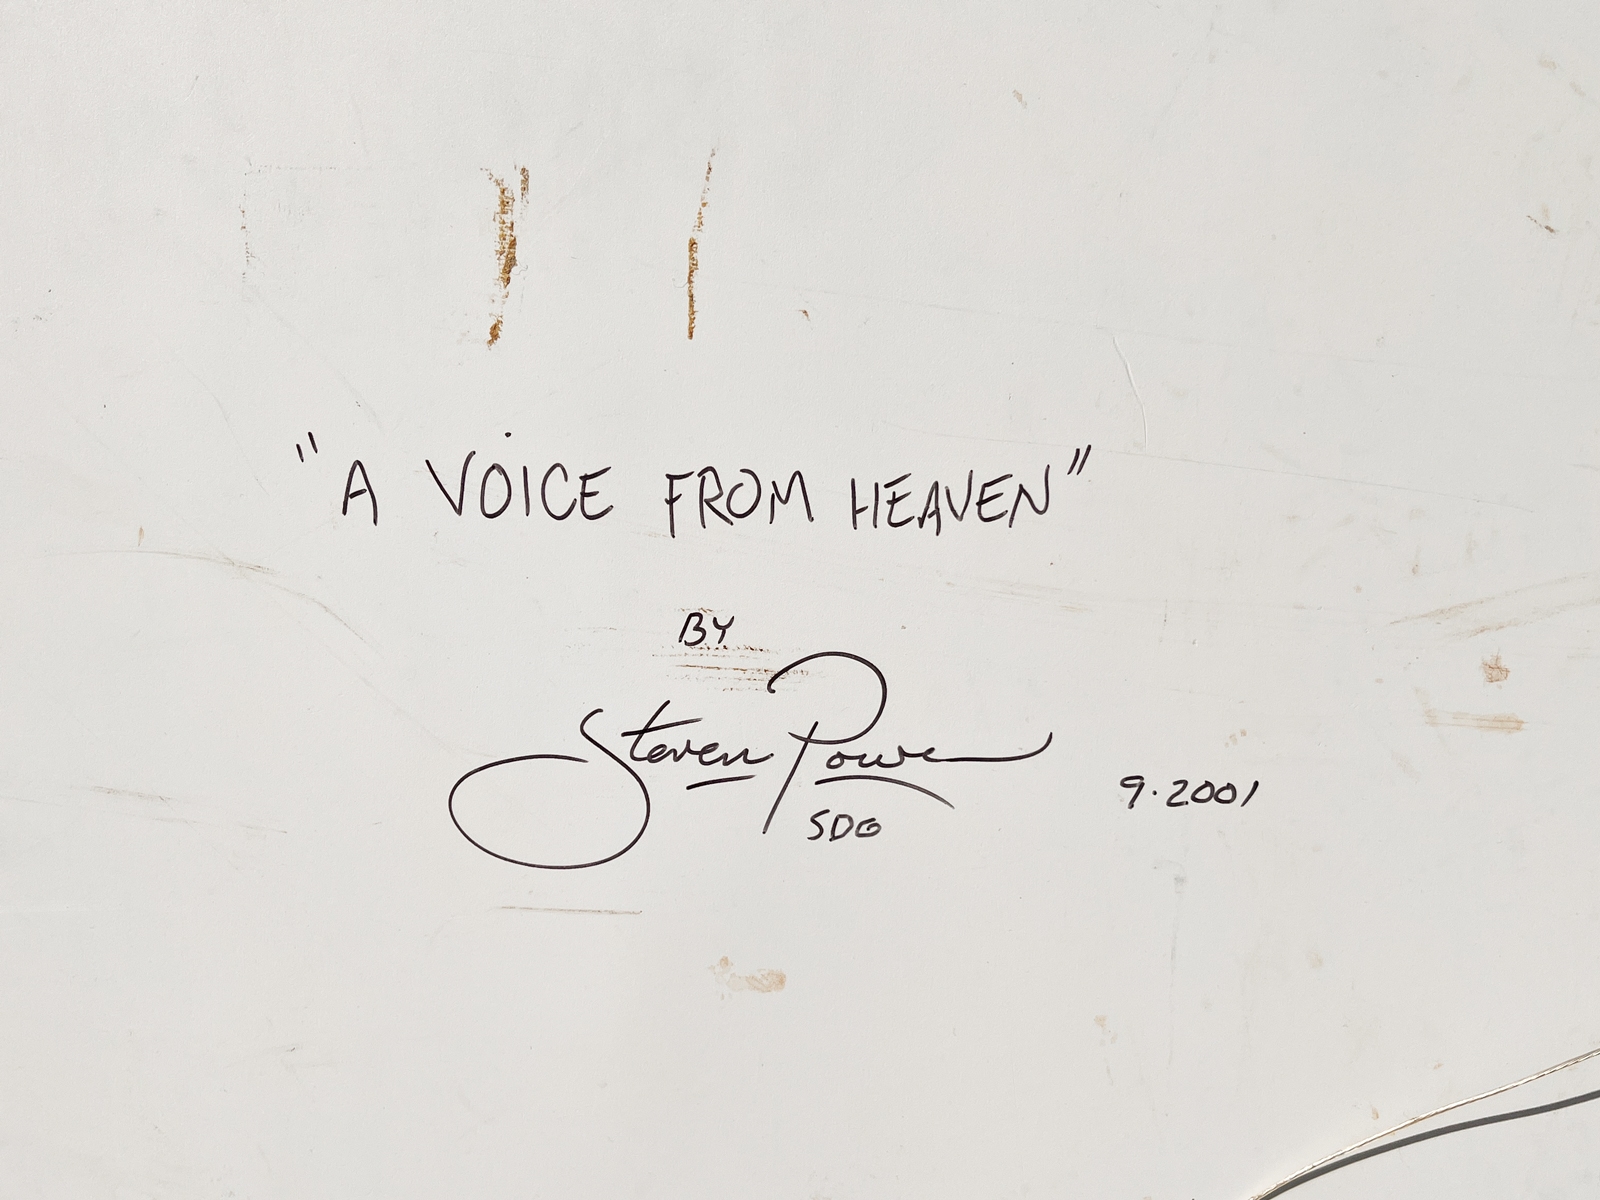 "A VOICE FROM HEAVEN"
BY
Steven Power
SDG
9.2001